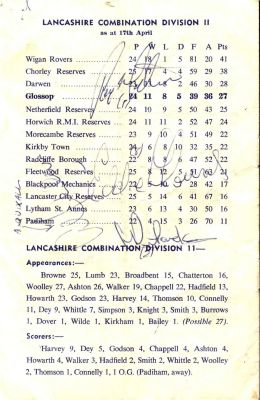 LANCASHIRE COMBINATION DIVISION II
as at 17th April
P W L D F A Pts
Wigan Rovers 24 18 1 5 81 20 41
Chorley Reserves 25 4 4 59 29 38
Darwen 2 46 30 28
Glossop 24 11 8 5 39 36 27
Netherfield Reserves 24 10 9 5 50 43 25
Horwich R.M.I. Reserves 24 52 47 24
Morecambe Reserves 23 9 10 4 51 49 22
Kirkby Town 24 6 8 10 32 35 22
Radcliffe Borough 22 8 8 6 47 52 22
Fleetwood Reserves 25 8 12 63 21
Blackpool Mechanics 22 10 28 42 17
Lancaster City Reserves 25 5 14 6 41 67 16
Lytham St. Annes 23 6 13 4 30 50 16
Padiham 22 4 15 3 26 70 11
LANCASHIRE COMBINATION DIVISION 11—
Appearances:—
Browne 25, Lumb 23, Broadbent 15, Chatterton 16,
Woolley 27, Ashton 26, Walker 19, Chappell 22, Hadfield 13,
Howarth 23, Godson 23, Harvey 14, Thomson 10, Connelly
11, Dey 9, Whittle 7, Simpson 3, Knight 3, Smith 3, Burrows
1, Dover 1, Wilde 1, Kirkham 1, Bailey 1. (Possible 27).
Scorers:—
Harvey 9, Dey 5, Godson 4, Chappell 4, Ashton 4,
Howarth 4, Walker 3, Hadfield 2, Smith 2, Whittle 2, Woolley
2, Thomson 1, Connelly 1, 1 O.G. (Padiham, away)